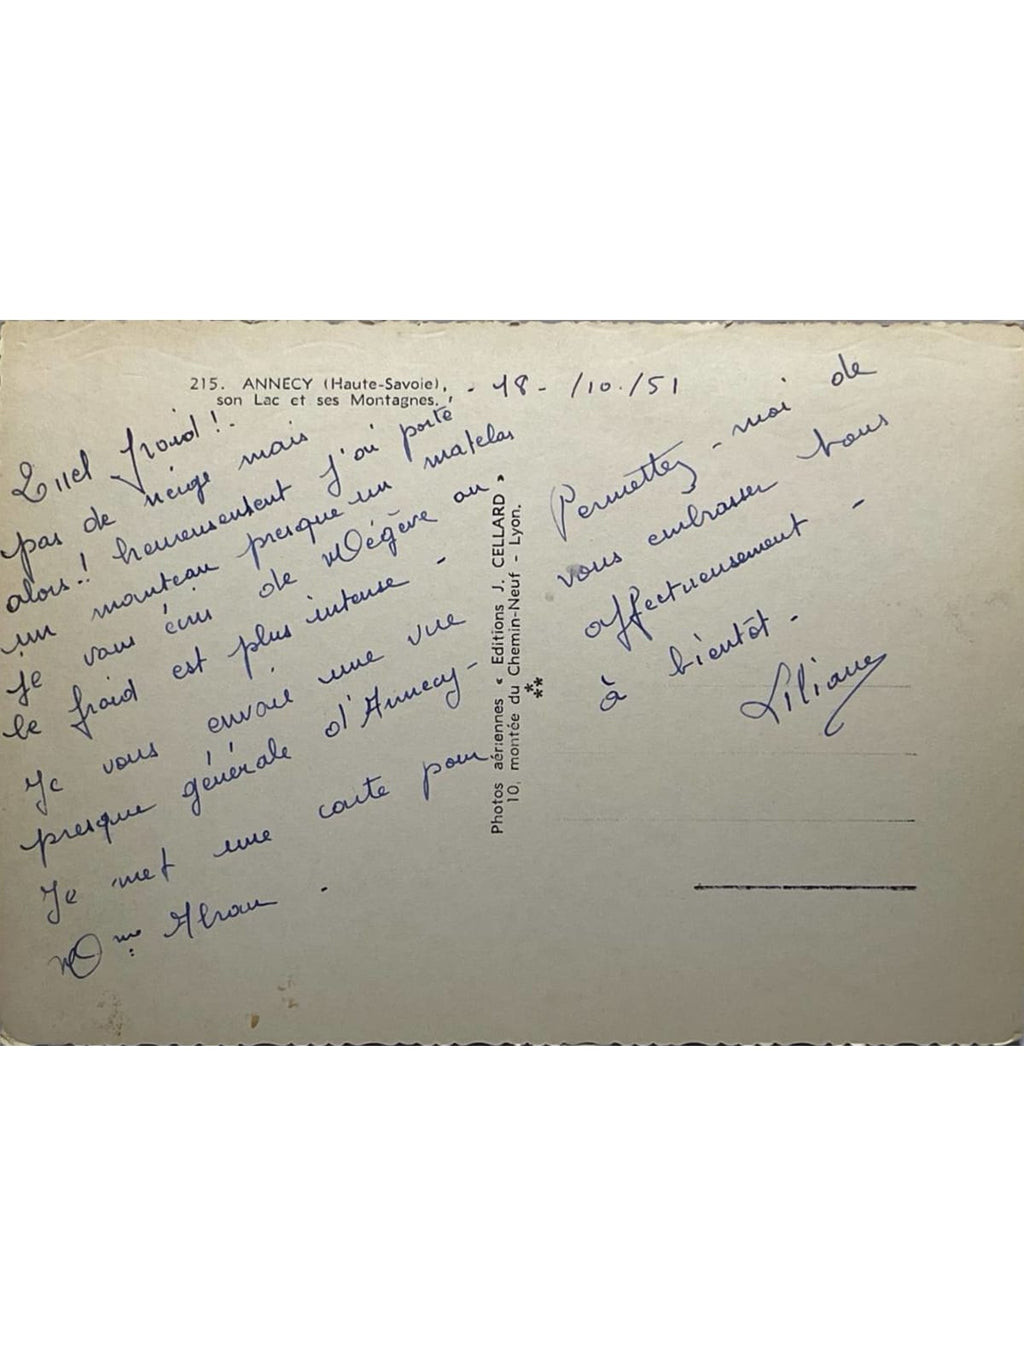 215. ANNECY (Haute-Savoie),
son Lac et ses Montagnes.
- 18 - /10./51
Quel froid!.
pas de neige mais
alors!! heureusement j'ai porté
un manteau presque un matelas
je vous écris de Mégève où
le froid est plus intense -
Je vous envoie une vue
presque générale d'Annecy -
Je met une carte pour
Mme
Permettez-moi de
vous embrasser tous
affectueusement -
à bientôt -
Liliane
Photos aériennes « Editions J. CELLARD »
10, montée du Chemin-Neuf - Lyon.